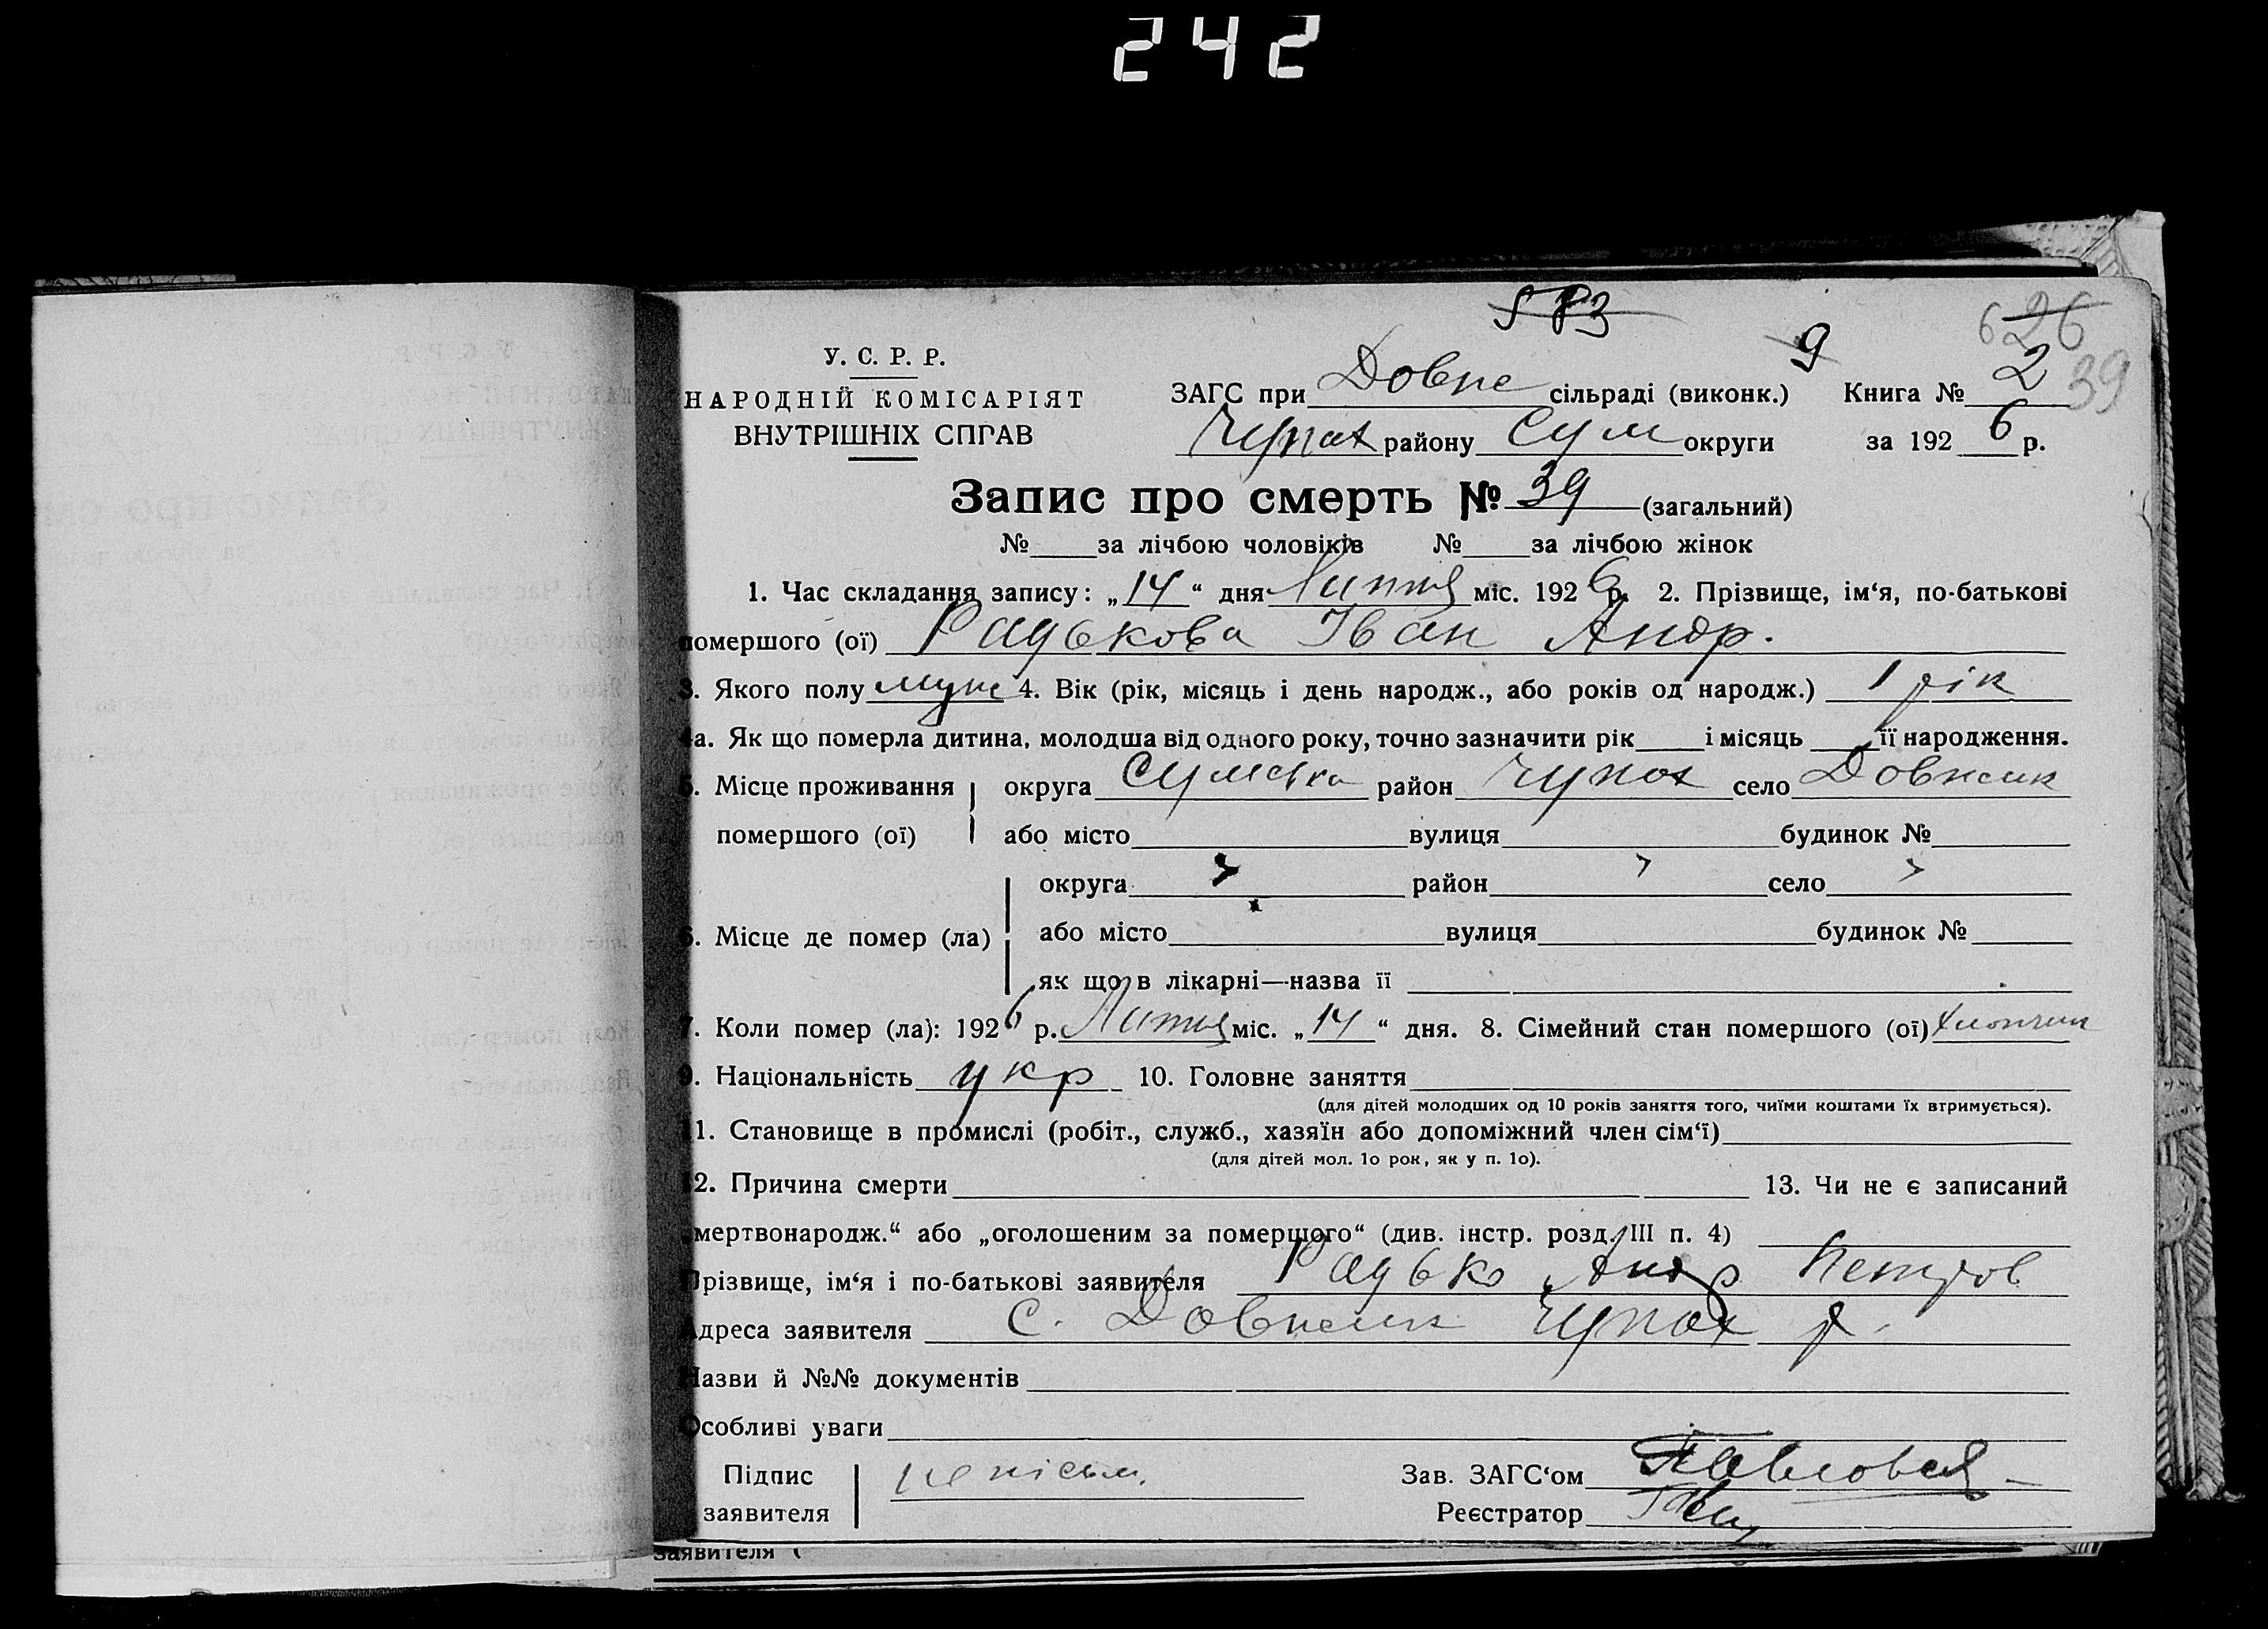 242
583
9
626
39
У. С. Р. Р.
НАРОДНІЙ КОМІСАРІЯТ
ВНУТРІШНІХ СПРАВ
ЗАГС при Довже сільраді (виконк.) Книга № 2
Чупах району Сум округи за 1926 р.
Запис про смерть № 39 (загальний)
№ за лічбою чоловіків № за лічбою жінок
1. Час складання запису: „14“ дня Липня міс. 1926 р. 2. Прізвище, ім‘я, по-батькові
помершого (ої) Радькова Іван Андр.
3. Якого полу муж 4. Вік (рік, місяць і день народж., або років од народж.) 1 рік
4а. Як що померла дитина, молодша від одного року, точно зазначити рік і місяць її народження.
5. Місце проживання округа Сумська район Чупах село Довжик
помершого (ої) або місто вулиця будинок №
округа район село
6. Місце де помер (ла) або місто вулиця будинок №
як що в лікарні—назва її
7. Коли помер (ла): 1926 р. Липня міс. „14“ дня. 8. Сімейний стан помершого (ої) хлопчик
9. Національність укр 10. Головне заняття
(для дітей молодших од 10 років заняття того, чиїми коштами їх втримується).
11. Становище в промислі (робіт., служб., хазяїн або допоміжний член сім‘ї)
(для дітей мол. 1о рок, як у п. 1о).
12. Причина смерти 13. Чи не є записаний
мертвонародж.“ або „оголошеним за помершого“ (див. інстр. розд. III п. 4)
Прізвище, ім‘я і по-батькові заявителя Радько Андр Петров
Адреса заявителя с. Довжик Чупах р.
Назви й №№ документів
Особливі уваги
Підпис неписьм. Зав. ЗАГС‘ом
заявителя Реєстратор
заявителя